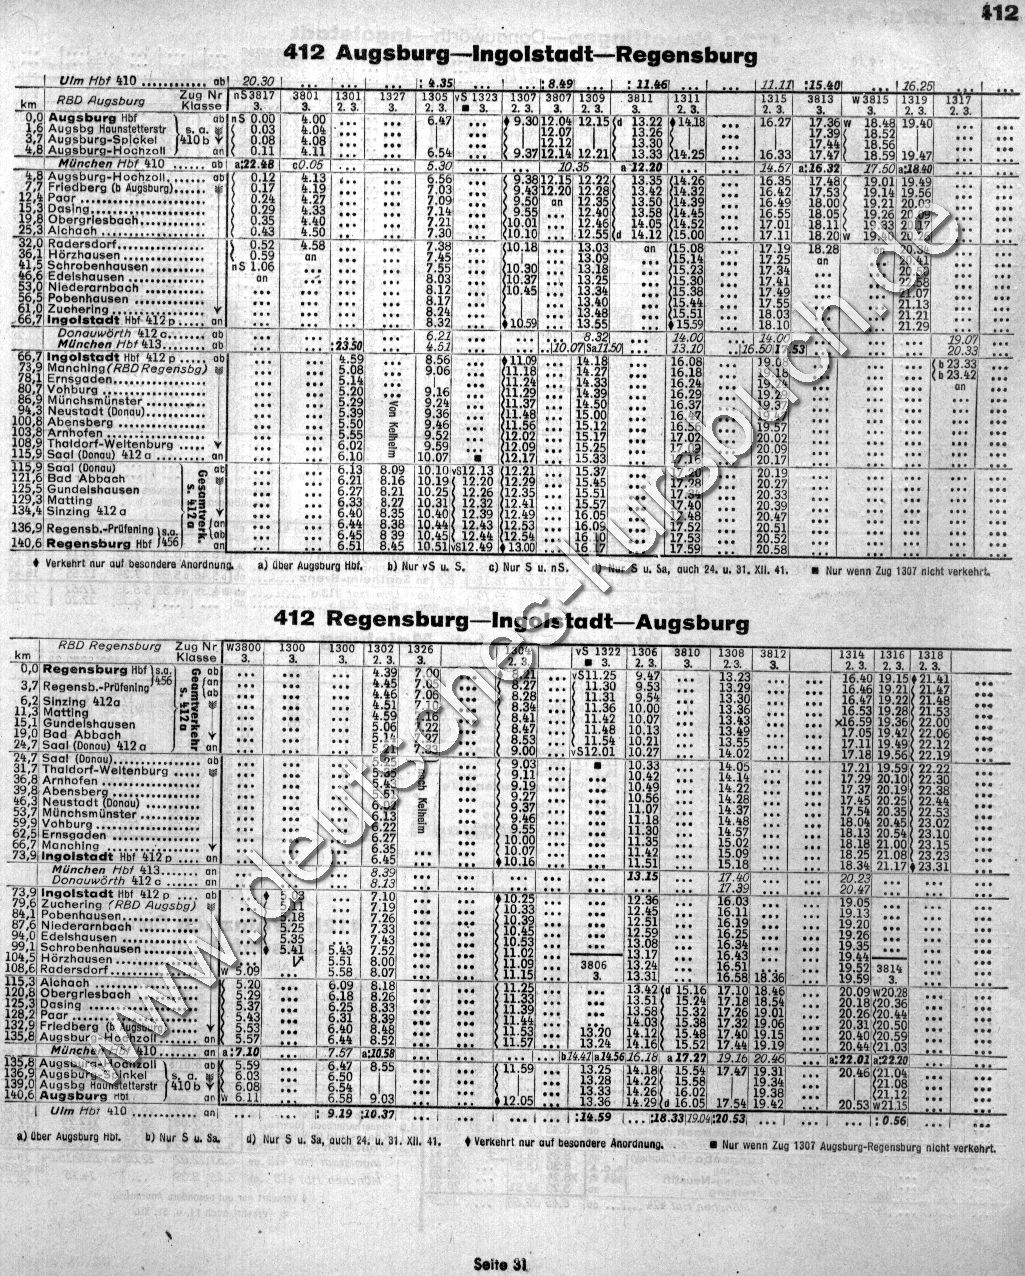 412
412 Augsburg—Ingolstadt—Regensburg
Ulm Hbf 410 ab 20.30 4.35 8.49 11.46 11.11 15.40 16.25
km RBD Augsburg Zug Nr Klasse nS3817 3. 3801 3. 1301 2. 3. 1327 3. 1305 2. 3. vS 1323 ■ 3. 1307 2. 3. 3807 3. 1309 2. 3. 3811 3. 1311 2. 3. 1315 2. 3. 3813 3. W 3815 3. 1319 2. 3. 1317 2. 3.
0,0 Augsburg Hbf ab nS 0.00 4.00 6.47 ♦ 9.30 12.04 12.15 d 13.22 ♦ 14.18 16.27 17.36 w 18.48 19.40
1,6 Augsbg Haunstetterstr s. a. 0.03 4.04 12.07 13.26 17.39 18.52
3,7 Augsburg-Spickel 410 b 0.08 4.08 12.12 13.30 17.44 18.56
4,8 Augsburg-Hochzoll an 0.11 4.11 6.54 9.37 12.14 12.21 13.33 14.25 16.33 17.47 18.59 19.47
München Hbf 410 ab a:22.48 c0.05 5.30 10.35 a 12.20 14.57 a:16.32 17.50 a:18.40
4,8 Augsburg-Hochzoll ab 0.12 4.13 6.56 9.38 12.15 12.22 13.35 14.26 16.35 17.48 19.01 19.49
7,7 Friedberg (b Augsburg) 0.17 4.19 7.03 9.43 12.20 12.28 13.42 14.32 16.42 17.53 19.14 19.56
12,4 Paar 0.24 4.27 7.09 9.50 an 12.35 13.50 14.39 16.49 18.00 19.21 20.03
15,3 Dasing 0.29 4.33 7.14 9.55 12.40 13.58 14.45 16.55 18.05 19.26
19,8 Obergriesbach 0.35 4.40 7.21 10.01 12.46 14.05 14.52 17.01 18.11 19.33 20.17
25,3 Aichach an 0.43 4.50 7.30 10.10 12.55 d 14.12 15.00 17.11 18.20 w
32,0 Radersdorf 0.52 4.58 7.38 10.18 13.03 an 15.08 17.19 18.28 an
36,1 Hörzhausen 0.59 an 7.45 13.09 15.14 17.25 an
41,5 Schrobenhausen nS 1.06 7.55 10.30 13.18 15.23 17.34
46,6 Edelshausen an 8.03 10.37 13.25 15.30 17.41
53,0 Niederarnbach 8.12 10.45 13.34 15.38 17.49 21.07
56,5 Pobenhausen 8.17 13.40 15.44 17.55 21.13
61,0 Zuchering 8.24 13.48 15.51 18.03 21.21
66,7 Ingolstadt Hbf 412 p an 8.32 ♦ 10.59 13.55 ♦ 15.59 18.10 21.29
Donauwörth 412 a ab 6.21 8.32 14.00 14.00 19.07
München Hbf 413 ab :23.50 4.51 10.07 Sa 11.50 13.10 16.50 20.33
66,7 Ingolstadt Hbf 412 p ab 4.59 8.56 ♦ 11.09 14.18 16.08 b 23.33
73,9 Manching (RBD Regensbg) 5.08 9.06 11.18 14.27 16.18 b 23.42
78,1 Ernsgaden 5.14 11.24 14.33 16.24 an
80,7 Vohburg 5.20 9.16 11.29 14.39 16.29
86,9 Münchsmünster 5.29 9.24 11.37 14.50 16.37
94,3 Neustadt (Donau) 5.39 9.36 11.48 15.00
100,8 Abensberg 5.50 9.46 11.56 15.12 19.57
103,8 Arnhofen 5.55 9.52 12.02 15.17 17.02 20.02
108,9 Thaldorf-Weltenburg 6.02 9.59 12.09 15.25 20.09
115,9 Saal (Donau) 412 a an 6.10 10.07 ■ 12.17 15.33 20.17
Von Kelheim
115,9 Saal (Donau) ab 6.13 8.09 10.10 vS12.13 12.21 15.37 17.20 20.19
121,6 Bad Abbach 6.21 8.16 10.19 12.20 12.29 15.45 17.28 20.27
125,5 Gundelshausen 6.27 8.21 10.25 12.26 12.35 15.51 20.33
129,3 Matting 6.33 8.27 10.31 12.32 12.41 15.57 17.40 20.39
134,4 Sinzing 412 a 6.40 8.35 10.40 12.39 12.49 16.05 17.48 20.47
136,9 Regensb.-Prüfening s.a. an 6.44 8.38 10.44 12.43 12.53 16.09 17.52 20.51
456 ab 6.45 8 39 10.45 12.44 12.54 16.10 17.53 20.52
140,6 Regensburg Hbf an 6.51 8.45 10.51 vS12.49 ♦ 13.00 16.17 17.59 20.58
Gesamtverk. s. 412a
♦ Verkehrt nur auf besondere Anordnung. a) über Augsburg Hbf. b) Nur vS u. S. c) Nur S u. nS. d) Nur S u. Sa, auch 24. u. 31. XII. 41. ■ Nur wenn Zug 1307 nicht verkehrt.
412 Regensburg—Ingolstadt—Augsburg
km RBD Regensburg Zug Nr Klasse W3800 3. 1300 3. 1300 3. 1302 2. 3. 1326 3. 1304 2. 3. vS 1322 ■ 3. 1306 2. 3. 3810 3. 1308 2. 3. 3812 3. 1314 2. 3. 1316 2. 3. 1318 2. 3.
0,0 Regensburg Hbf s.a. ab 4.39 7.00 vS11.25 9.47 13.23 16.40 19.15 ♦ 21.41
3,7 Regensb.-Prüfening 456 an 4.45 8.27 11.30 9.53 13.29 16.46 19.21 21.47
ab 4.46 7.06 8.28 11.31 9.54 13.30 16.47 19.22 21.48
6,2 Sinzing 412a 4.51 8.34 11.36 10.00 13.36 16.53 19.28 21.53
11,3 Matting 4.59 8.41 11.42 10.07 13.43 ×16.59 19.36 22.00
15,1 Gundelshausen 5.06 8.47 11.48 10.13 13.49 17.05 19.42 22.06
19,0 Bad Abbach 5.14 8.53 11.54 10.21 13.55 17.11 19.49 22.12
24,7 Saal (Donau) 412 a an 9.00 vS12.01 10.27 14.02 17.18 19.56 22.19
Gesamtverkehr s. 412a
24,7 Saal (Donau) ab 9.03 ■ 10.33 14.05 17.21 19.59 22.22
31,7 Thaldorf-Weltenburg 9.11 10.42 14.14 17.29 20.10 22.30
36,8 Arnhofen 9.19 10.49 14.22 17.37 20.19 22.38
39,8 Abensberg 9.27 10.56 14.28 17.45 20.25 22.44
46,3 Neustadt (Donau) 9.37 11.07 14.37 17.54 20.35 22.53
53,7 Münchsmünster 6.13 9.46 11.18 14.48 18.04 20.45 23.02
59,9 Vohburg 6.22 9.55 11.30 14.57 18.13 20.54 23.10
62,5 Ernsgaden 6.27 10.00 11.35 15.02 18.18 21.00 23.15
66,7 Manching 6.35 10.07 11.42 15.09 18.25 21.08 23.23
73,9 Ingolstadt Hbf 412 p an 6.45 ♦ 10.16 11.51 15.18 18.34 21.17 ♦ 23.31
nach Kelheim
München Hbf 413 an 8.39 13.15 17.40 20.23
Donauwörth 412 a an 8.13 17.39 20.47
73,9 Ingolstadt Hbf 412 p ab ♦ 5.03 7.10 ♦ 10.25 12.36 16.03 19.05
79,6 Zuchering (RBD Augsbg) 5.11 7.19 10.33 12.45 16.11 19.13
84,1 Pobenhausen 5.18 7.26 10.39 12.51 16.19 19.20
87,6 Niederarnbach 5.25 7.33 10.45 12.59 16.25 19.26
94,0 Edelshausen 5.35 7.43 10.53 13.08 16.34 19.35
99,1 Schrobenhausen ♦ 5.41 5.43 7.52 11.02 13.17 16.43 19.44
104,5 Hörzhausen 5.51 8.00 11.09 13.24 16.51 19.52
108,6 Radersdorf w 5.09 5.58 8.07 11.15 3806 3. 13.31 16.58 18.36 19.59 3814 3.
115,3 Aichach 5.20 6.09 8.18 11.25 13.42 d 15.16 17.10 18.46 20.09 w20.28
120,8 Obergriesbach 5.29 6.18 8.26 11.33 13.51 15.24 17.18 18.54 20.18 20.36
125,3 Dasing 5.37 6.25 8.33 11.39 13.58 15.32 17.26 19.01 20.26 20.44
128,2 Paar 5.43 6.31 8.39 11.44 14.03 15.38 17.32 19.06 20.31 20.50
132,9 Friedberg (b Augsburg) 5.53 6.40 8.48 11.53 13.20 14.12 15.48 17.40 19.15 20.40 20.59
135,8 Augsburg-Hochzoll an 5.57 6.44 8.52 11.57 13.24 14.16 15.52 17.44 19.19 20.44 21.03
München Hbf 410 an a:7.10 7.57 a:10.58 b14.47 a14.56 16.18 a 17.27 19.16 20.46 a:22.01 a:22.20
135,8 Augsburg-Hochzoll ab 5.59 6.47 8.55 11.59 13.25 14.18 15.54 17.47 19.31 20.46 21.04
136,9 Augsburg-Spickel s. a. 6.03 6.50 13.28 14.22 15.58 19.34 21.08
139,0 Augsbg Haunstetterstr 410 b 6.08 6.54 13.33 14.26 16.02 19.38 21.12
140,6 Augsburg Hbf an w 6.11 6.58 9.03 ♦ 12.05 13.36 14.29 d 16.05 17.54 19.42 20.53 w21.15
Ulm Hbf 410 an : 9.19 :10.37 :14.59 :18.33 19.04 20.53 : 0.56
a) über Augsburg Hbf. b) Nur S u. Sa. d) Nur S u. Sa, auch 24. u. 31. XII. 41. ♦ Verkehrt nur auf besondere Anordnung. ■ Nur wenn Zug 1307 Augsburg-Regensburg nicht verkehrt.
Seite 31
www.deutsches-kursbuch.de